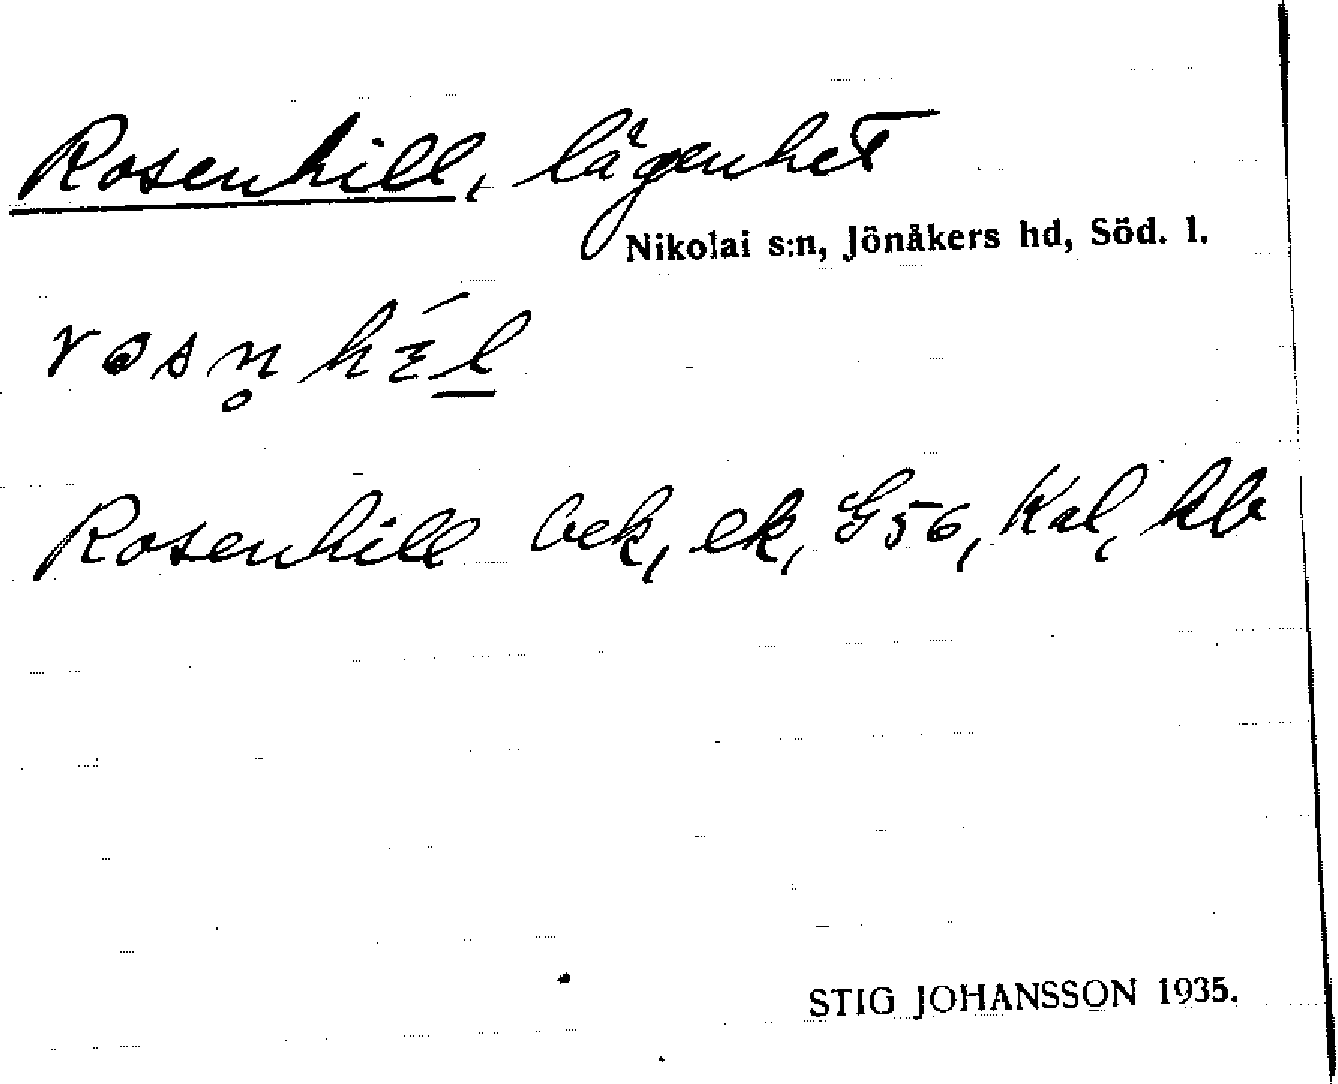 Rosenhill, lägenhet
Nikolai s:n, Jönåkers hd, Söd. l.
rosn̥hɛ́l̲
Rosenhill bek, ek, G56, Kal, hb
STIG JOHANSSON 1935.